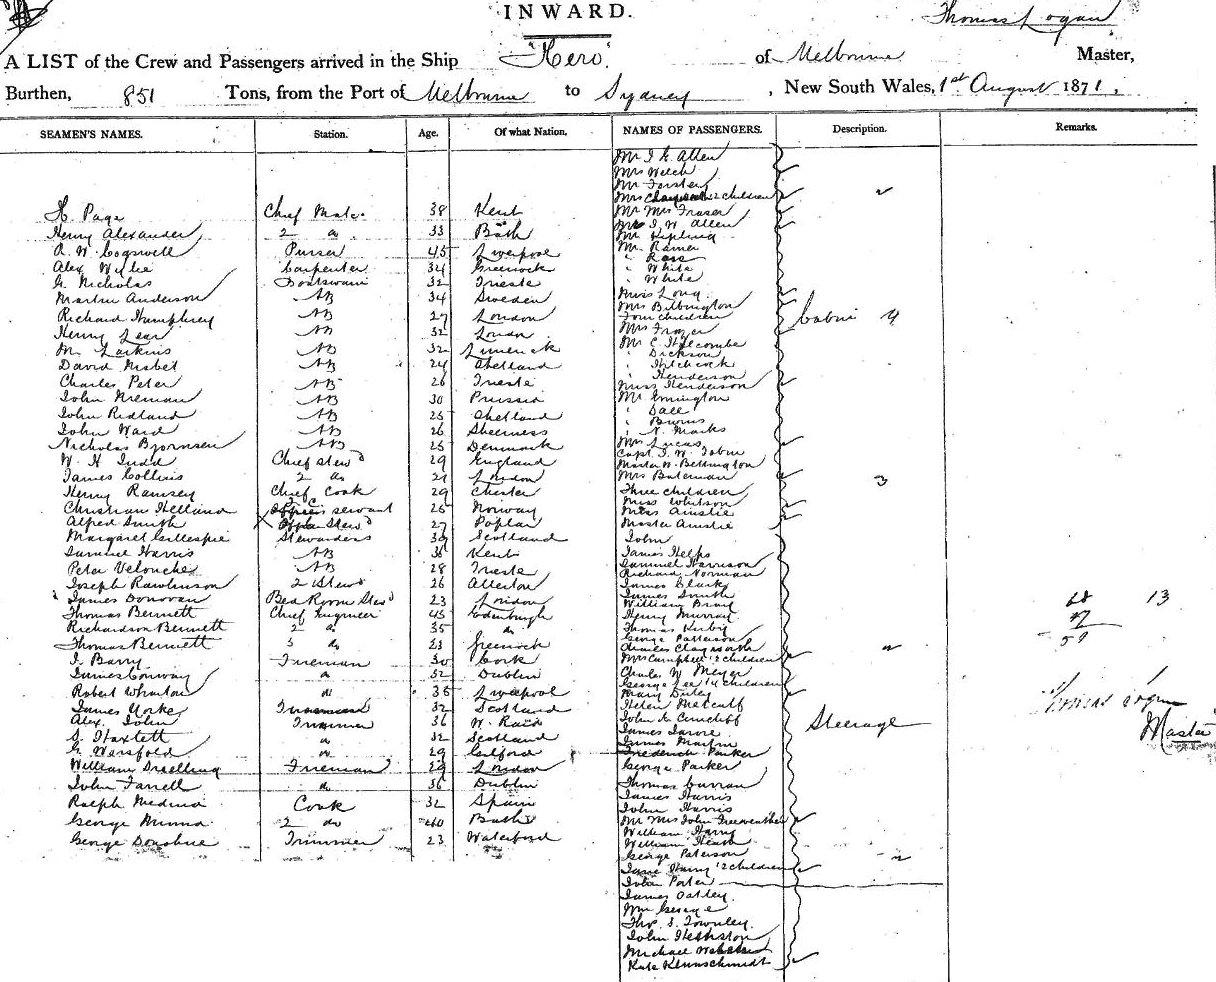 INWARD.
Thomas Logan
A LIST of the Crew and Passengers arrived in the Ship "Hero" of Melbourne Master,
Burthen, 851 Tons, from the Port of Melbourne to Sydney, New South Wales, 1st August 1871,
SEAMEN'S NAMES. Station. Age. Of what Nation. NAMES OF PASSENGERS. Description. Remarks.
Page Chief Mate 38 Kent
Henry Alexander 2 do 33 Bath
A. W. Cogswell Purser 45 Liverpool
Alex Wylie Carpenter 34 Greenock
G. Nicholas Boatswain 32 Trieste
Martin Anderson AB 34 Sweden
Richard Humphrey AB 27 London
Henry Lear AB 32 London
M. Larkins AB 32 Limerick
David Nisbet AB 24 Shetland
Charles Peter AB 26 Trieste
John Nieman AB 30 Prussia
John Ridland AB 25 Shetland
John Ward AB 26 Sheerness
Nicholas Bjornsen AB 25 Denmark
W. H. Judd Chief Stewd 29 England
James Collins 2 do 21 London
Henry Ramsey Chief Cook 29 Chester
Christian Helland servant 25 Norway
Alfred Smith Stewd 27 Poplar
Margaret Gillespie Stewardess 39 Scotland
Samuel Harris AB Kent
Peter AB 28 Trieste
Joseph Rawlinson 2 Stewd 26
James Donovan Bed Room Stewd 23 London
Thomas Bennett Chief Engineer 45 Edenburgh
Richardson Bennett 2 do 35 do
Thomas Bennett 3 do 23 Greenock
J. Barry Fireman 30 Cork
James Conway do 32 Dublin
Robert Wharton do 35 Liverpool
James Yorke 32 Scotland
Alex. John Trimmer 36
S. Haxtett do 32 Scotland
G. Warsfold do 29 Guilford
William Snelling Fireman 29 London
John Farrell do 36 Dublin
Ralph Medina Cook 32 Spain
George 2 do 40 Bath
George Donohue Trimmer 23 Waterford
Mr J. G. Allen
Mrs Welch
Mr Forster
Mrs 2 children
Mr Mrs Fraser
Mr J. W. Allen
Mr Kipling
Mr Ramer
" Ross
" White
" White
Miss Long
Mrs Bilbington
Four children
Mrs Frazer
Mr C. Halcombe
" Dickson
" Hitchcock
" Henderson
Miss Henderson
Mr Emington
" Dale
" Burns
" N. Marks
Mrs Lucas
Capt. J. W. Tobin
Master N. Bettington
Mrs Bateman
Three children
Miss Whitson
Miss Ainslie
Master Ainslie
Cabin
John
James Helps
Samuel Harrison
Richard Norman
James Clark
James Smith
William Bray
Henry Murray
Thomas Kirby
George Patterson
Charles Claysworth
Mrs Campbell 2 children
Charles W. Meyer
George Lee 4 children
Mary Duley
Helen Metcalf
John McCuncliff
James Jarore
James Martin
Frederick Parker
George Parker
Thomas Curran
James Harris
John Harris
Mr Mrs John Greenwether
William Harry
William Heath
George Paterson
Jane Harry 2 children
John Porter
James Oatley
Wm George
Thos. S. Townley
John Heshston
Michael Webster
Kate Kleinschmidt
Steerage
13
Thomas Logan
Master